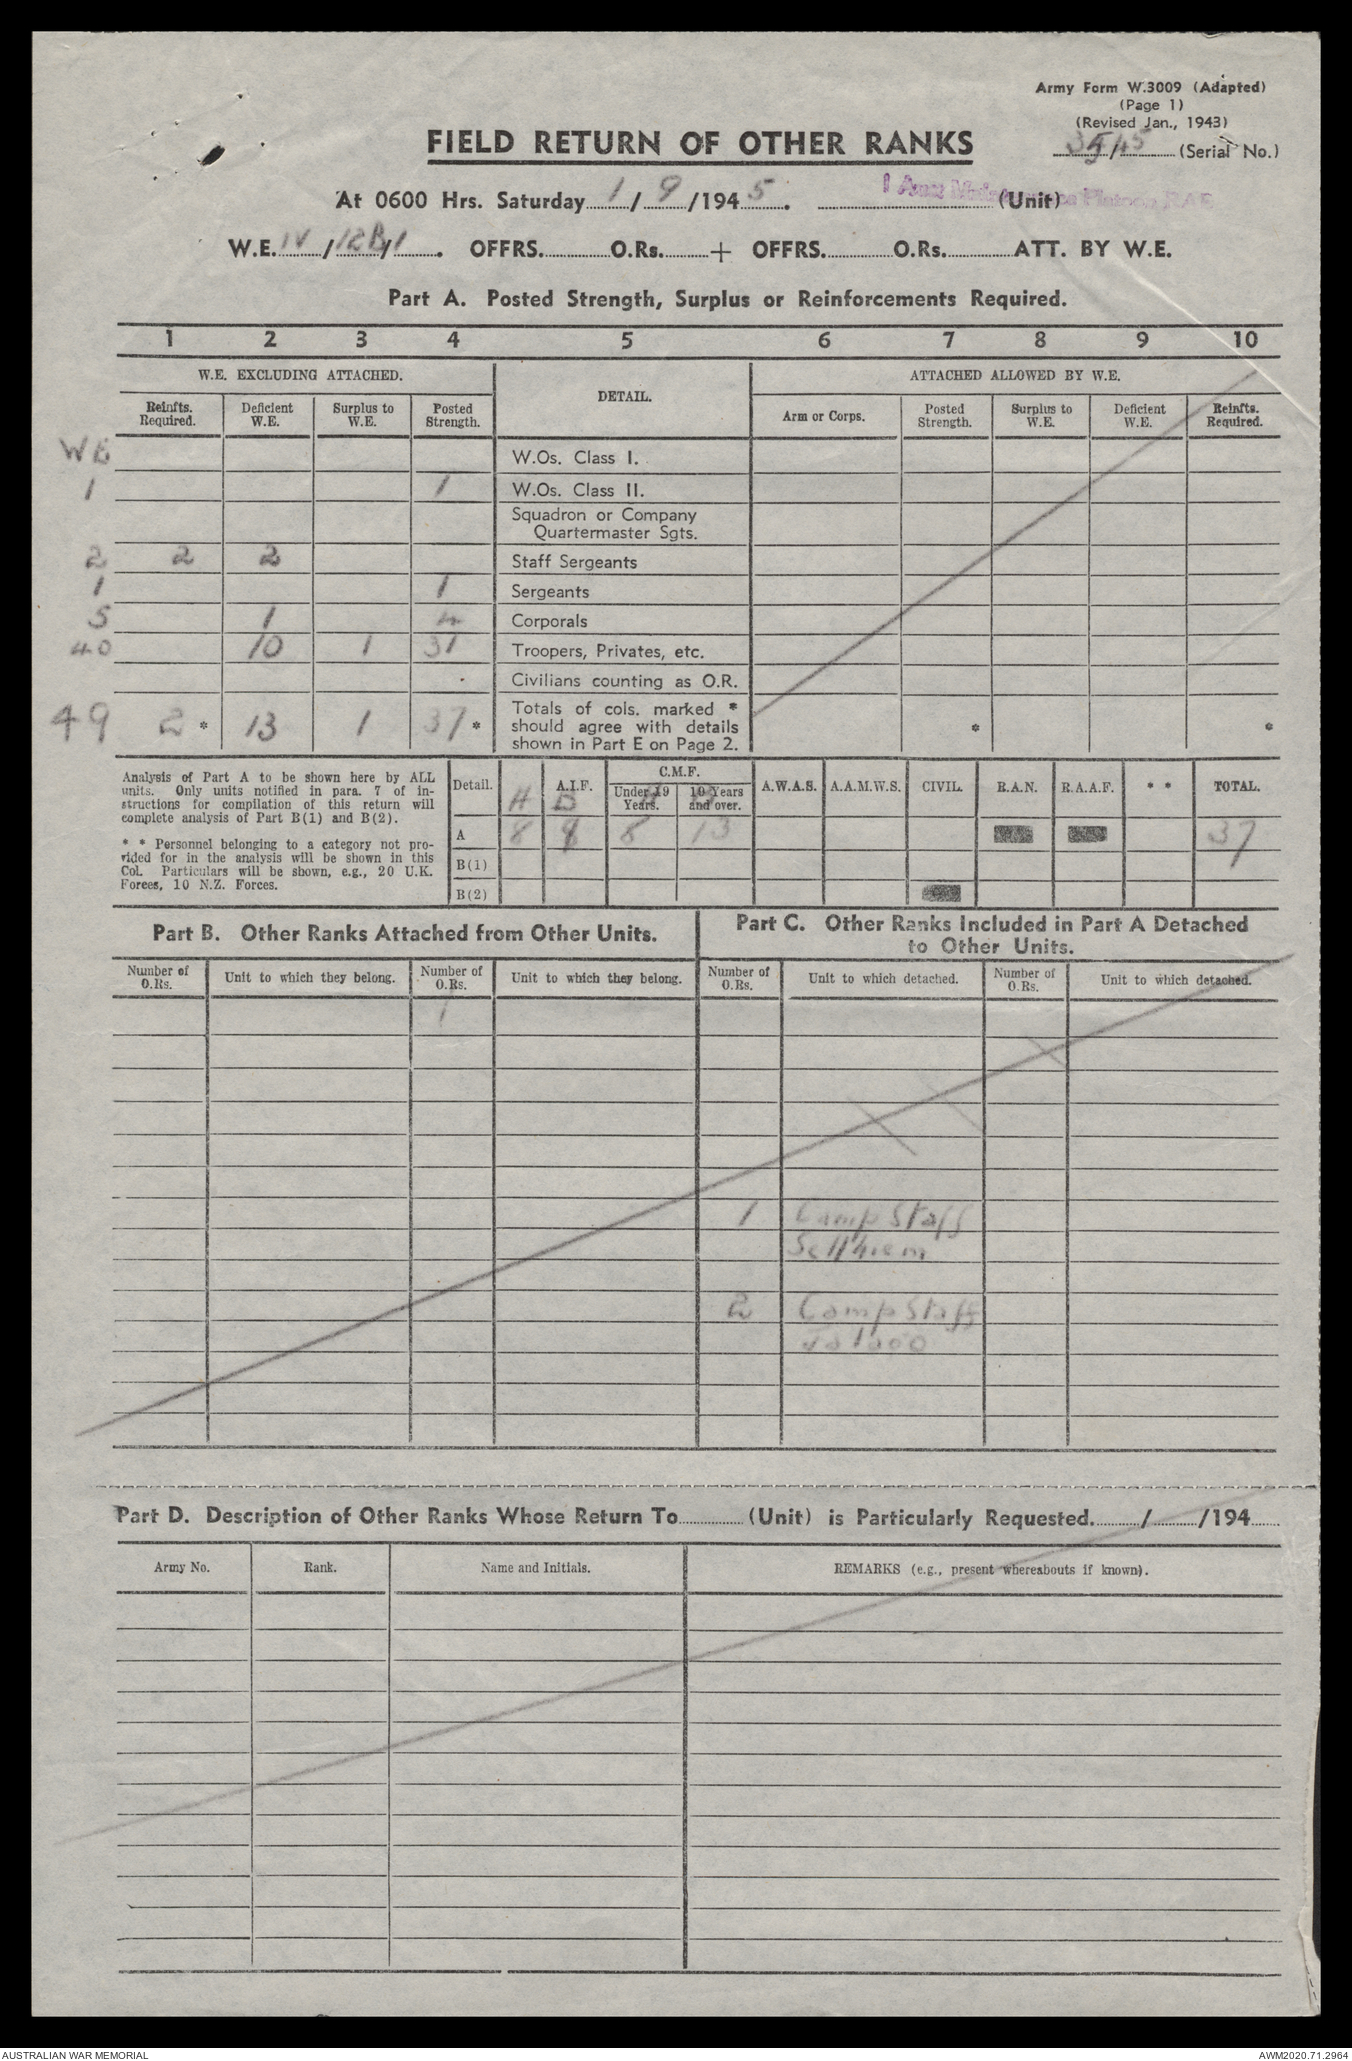 Army Form W.3009 (Adapted)
(Page 1)
(Revised Jan., 1943)
35/45 (Serial No.)
FIELD RETURN OF OTHER RANKS
At 0600 Hrs. Saturday 1/9/1945. (Unit)
Platoon RAE
W.E. IV/12B/1. OFFRS. O.Rs. + OFFRS. O.Rs. ATT. BY W.E.
Part A. Posted Strength, Surplus or Reinforcements Required.
1 2 3 4 5 6 7 8 9 10
W.E. EXCLUDING ATTACHED. DETAIL. ATTACHED ALLOWED BY W.E.
Reinfts. Required. Deficient W.E. Surplus to W.E. Posted Strength. Arm or Corps. Posted Strength. Surplus to W.E. Deficient W.E. Reinfts. Required.
WE W.Os. Class I.
1 1 W.Os. Class II.
Squadron or Company
Quartermaster Sgts.
2 2 2 Staff Sergeants
1 1 Sergeants
5 1 4 Corporals
40 10 1 31 Troopers, Privates, etc.
Civilians counting as O.R.
49 2 * 13 1 37 * Totals of cols. marked *
should agree with details * *
shown in Part E on Page 2.
Analysis of Part A to be shown here by ALL
units. Only units notified in para. 7 of in-
structions for compilation of this return will
complete analysis of Part B(1) and B(2).
* * Personnel belonging to a category not pro-
vided for in the analysis will be shown in this
Col. Particulars will be shown, e.g., 20 U.K.
Forces, 10 N.Z. Forces.
Detail. A.I.F. C.M.F. A.W.A.S. A.A.M.W.S. CIVIL. R.A.N. R.A.A.F. * * TOTAL.
Under 19 Years. 19 Years and over.
A B
A 8 8 8 13 37
B(1)
B(2)
Part B. Other Ranks Attached from Other Units.
Number of O.Rs. Unit to which they belong. Number of O.Rs. Unit to which they belong.
1
Part C. Other Ranks Included in Part A Detached
to Other Units.
Number of O.Rs. Unit to which detached. Number of O.Rs. Unit to which detached.
1 Camp Staff
Sellhiem
2 Camp Staff
Part D. Description of Other Ranks Whose Return To (Unit) is Particularly Requested. / /194
Army No. Rank. Name and Initials. REMARKS (e.g., present whereabouts if known).
AUSTRALIAN WAR MEMORIAL AWM2020.71.2964